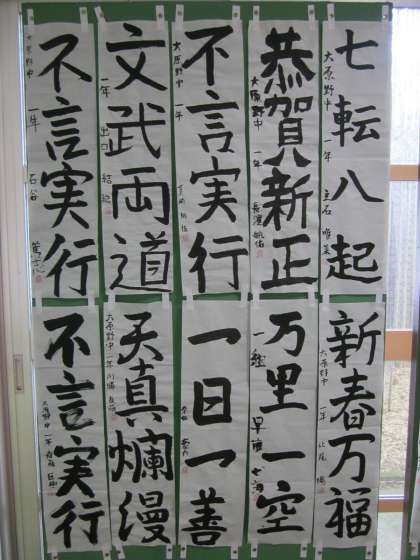 七転八起
大原野中 一年
恭賀新正
大原野中 一年
不言実行
大原野中 一年
文武両道
一年 出口 結
不言実行
大原野中 一年 石谷
新春万福
大原野中 一年
万里一空
一組 早
一日一善
天真爛漫
大原野中 一年
不言実行
大原野中 一年